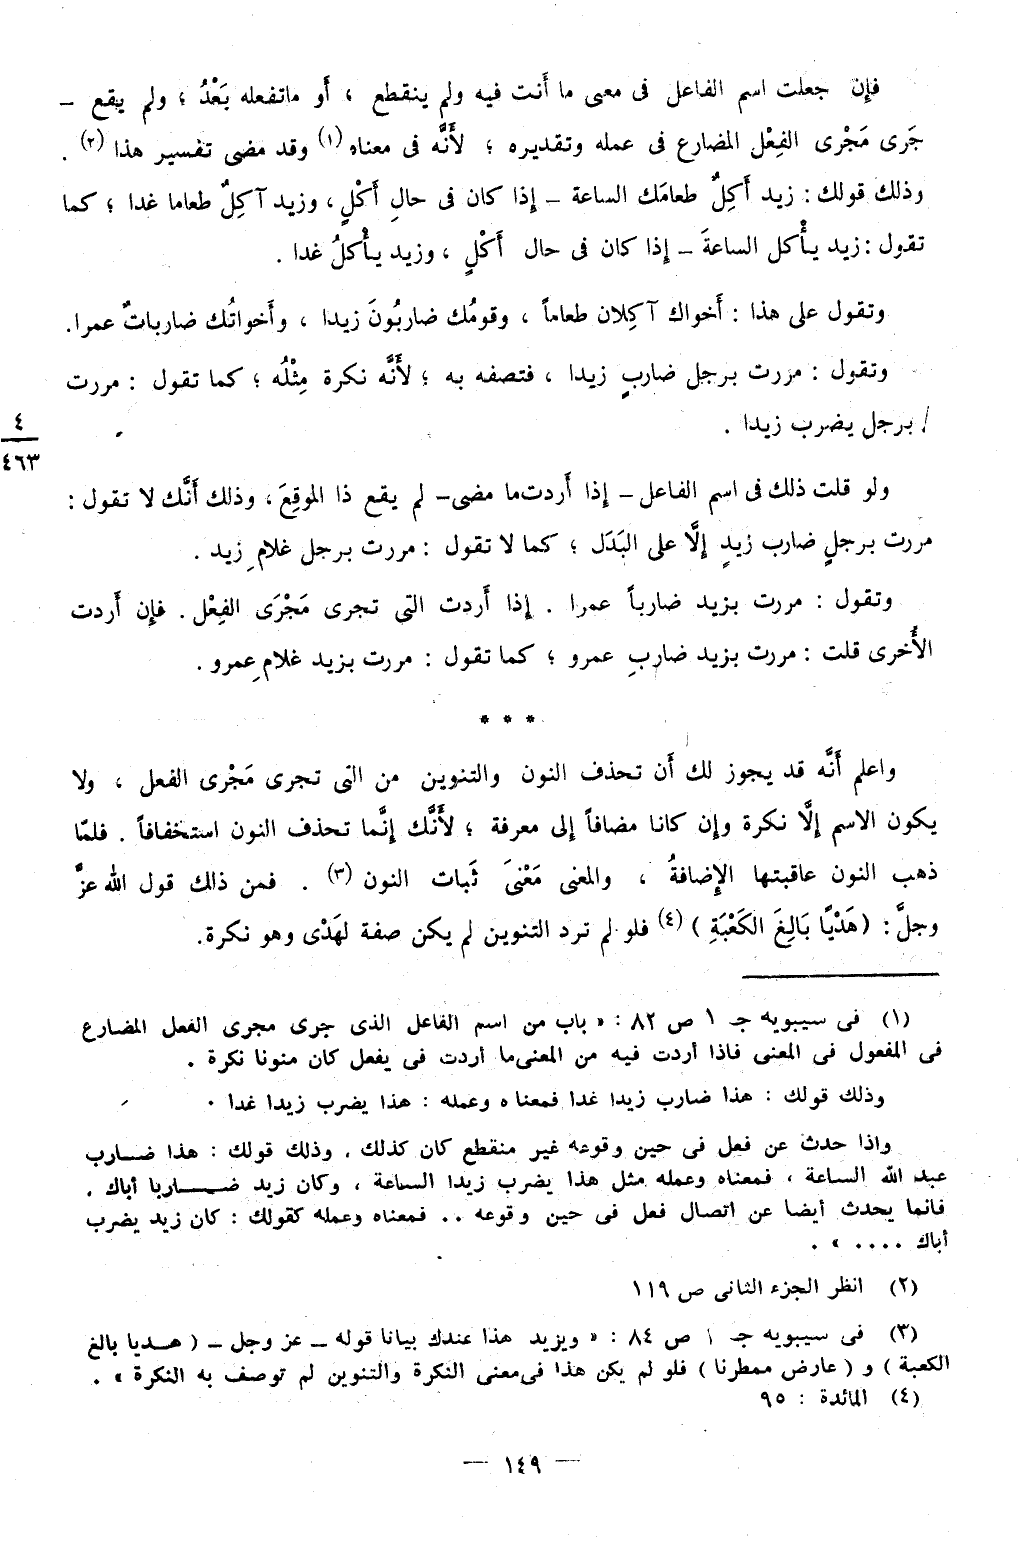 فإن جعلت اسم الفاعل فى معنى ما أَنت فيه ولم ينقطع ، أَو ماتفعله بَعْدُ ؛ ولم يقع –
جَرى مَجْرى الفِعْل المضارع فى عمله وتقديره ؛ لأَنَّه فى معناه (١) وقد مضى تفسير هذا (٢) .
وذلك قولك : زيد آكِلٌ طعامَك الساعة – إذا كان فى حالِ أَكْلٍ ، وزيد آكِلٌ طعاما غدا ؛ كما
تقول : زيد يأْكل الساعةَ – إذا كان فى حال أَكْلٍ ، وزيد يأْكلُ غدا .
وتقول على هذا : أَخواك آكِلان طعاماً ، وقومُك ضاربُونَ زيدا ، وأَخواتُك ضارباتٌ عمرا.
وتقول : مررت برجل ضاربٍ زيدا ، فتصفه به ؛ لأَنَّه نكرة مِثْلُه ؛ كما تقول : مررت
/ برجل يضرب زيدا .
٤
٤٦٣
ولو قلت ذلك فى اسم الفاعل – إذا أَردت ما مضى – لم يقع ذا الموقِعَ ، وذلك أَنَّك لا تقول :
مررت برجلٍ ضارب زيدٍ إلَّا على البَدَل ؛ كما لا تقول : مررت برجل غلامِ زيد .
وتقول : مررت بزيد ضارباً عمرا . إذا أَردت التى تجرى مَجْرَى الفِعْل . فإن أَردت
الأُخرى قلت : مررت بزيد ضاربِ عمرو ؛ كما تقول : مررت بزيد غلامِ عمرو .
* * *
واعلم أَنَّه قد يجوز لك أَن تحذف النون والتنوين من التى تجرى مَجْرى الفعل ، ولا
يكون الاسم إلَّا نكرة وإن كانا مضافاً إلى معرفة ؛ لأَنَّك إنَّما تحذف النون استخفافاً . فلمّا
ذهب النون عاقبتها الإضافةُ ، والمعنى مَعْنىَ ثَبات النون (٣) . فمن ذالك قول الله عزَّ
وجلَّ : (هَدْيًا بَالِغَ الكَعْبَةِ ) (٤) فلو لم ترد التنوين لم يكن صفة لهَدْى وهو نكرة.
(١) فى سيبويه جـ ١ ص ٨٢ : « باب من اسم الفاعل الذى جرى مجرى الفعل المضارع
فى المفعول فى المعنى فاذا أردت فيه من المعنى ما أردت فى يفعل كان منونا نكرة .
وذلك قولك : هذا ضارب زيدا غدا فمعناه وعمله : هذا يضرب زيدا غدا .
واذا حدث عن فعل فى حين وقوعه غير منقطع كان كذلك ، وذلك قولك : هذا ضـارب
عبد الله الساعة ، فمعناه وعمله مثل هذا يضرب زيدا الساعة ، وكان زيد ضـــاربا أباك ،
فانما يحدث أيضا عن اتصال فعل فى حين وقوعه .. فمعناه وعمله كقولك : كان زيد يضرب
أباك .... » .
(٢) انظر الجزء الثانى ص ١١٩
(٣) فى سيبويه جـ ١ ص ٨٤ : « ويزيد هذا عندك بيانا قوله – عز وجل – ( هـديا بالغ
الكعبة ) و ( عارض ممطرنا ) فلو لم يكن هذا فى معنى النكرة والتنوين لم توصف به النكرة » .
(٤) المائدة : ٩٥
— ١٤٩ —